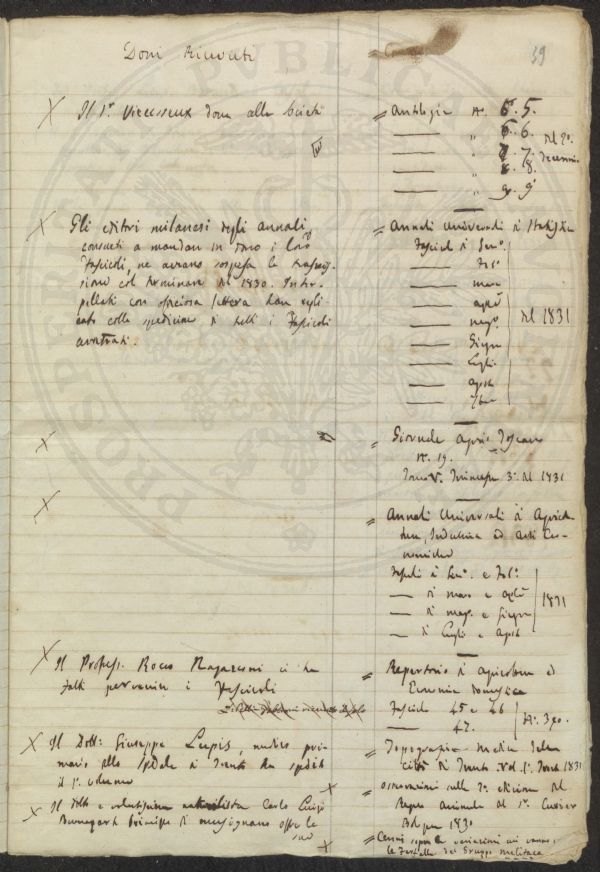 39
Doni Ricevuti
Il Sr. Vieusseux dona alla Società
= Antologia N. 6. 5.
—— " 6. 6.
—— " 7. 7.
—— " 8. 8.
—— " 9. 9
del 2o. decennio
Gli editori milanesi degli annali,
consueti a mandare in dono i loro
fascicoli, ne avevano sospesa la trasmis-
sione col terminare del 1830. Inter-
pellati con officiosa lettera han repli-
cato colla spedizione di tutti i fascicoli
arretrati.
= Annali Universali di Statistica
Fascicoli di Geno.
—— Febo.
—— marzo
—— aple
—— maggo.
—— Giugno
—— Luglio
—— agosto
—— 7bre
del 1831
= Giornale Agrario Toscano
N. 19.
Trimestre 3o. del 1831
= Annali Universali di Agricol-
tura, Industria ed Arti Eco-
nomiche
Fascicoli di Geno. e Febo.
—— di marzo e aple
—— di maggo. e Giugno
—— di Luglio e Agosto
1831
Il Profess. Rocco Ragazzoni ci ha
fatti pervenire i Fascicoli
= Repertorio di agricoltura ed
Economia domestica
Fascicoli 45 e 46
—— 47.
Il Dott. Giuseppe Lupis, medico pri-
mario allo Spedale di Trento ha spedito
il 1o. volume
= Topografia Medica della
Città di Trento Vol. 1o. Trento 1831
Il dotto e naturalista Carlo Luigi
Bonaparte Principe di Musignano offre le
sue
= osservazioni sulla 2a. edizione del
Regno Animale del Br. Cuvier
Bologna 1830
= Cenni sopra le variazioni
le Farfalle del Gruppo Melitaea